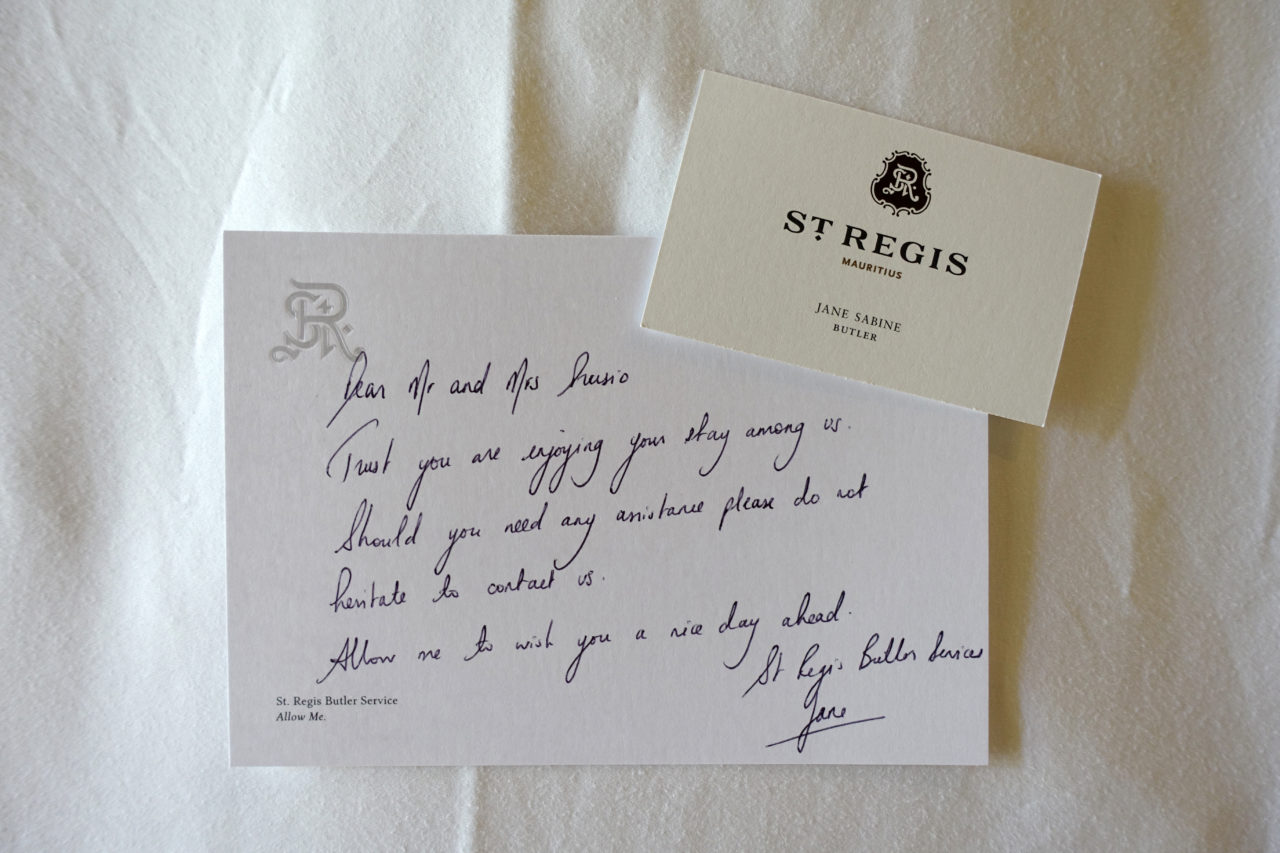 ST REGIS
MAURITIUS
JANE SABINE
BUTLER
Dear Mr and Mrs
Trust you are enjoying your stay among us.
Should you need any assistance please do not
hesitate to contact us.
Allow me to wish you a nice day ahead.
St Regis Butler Services
Jane
St. Regis Butler Service
Allow Me.